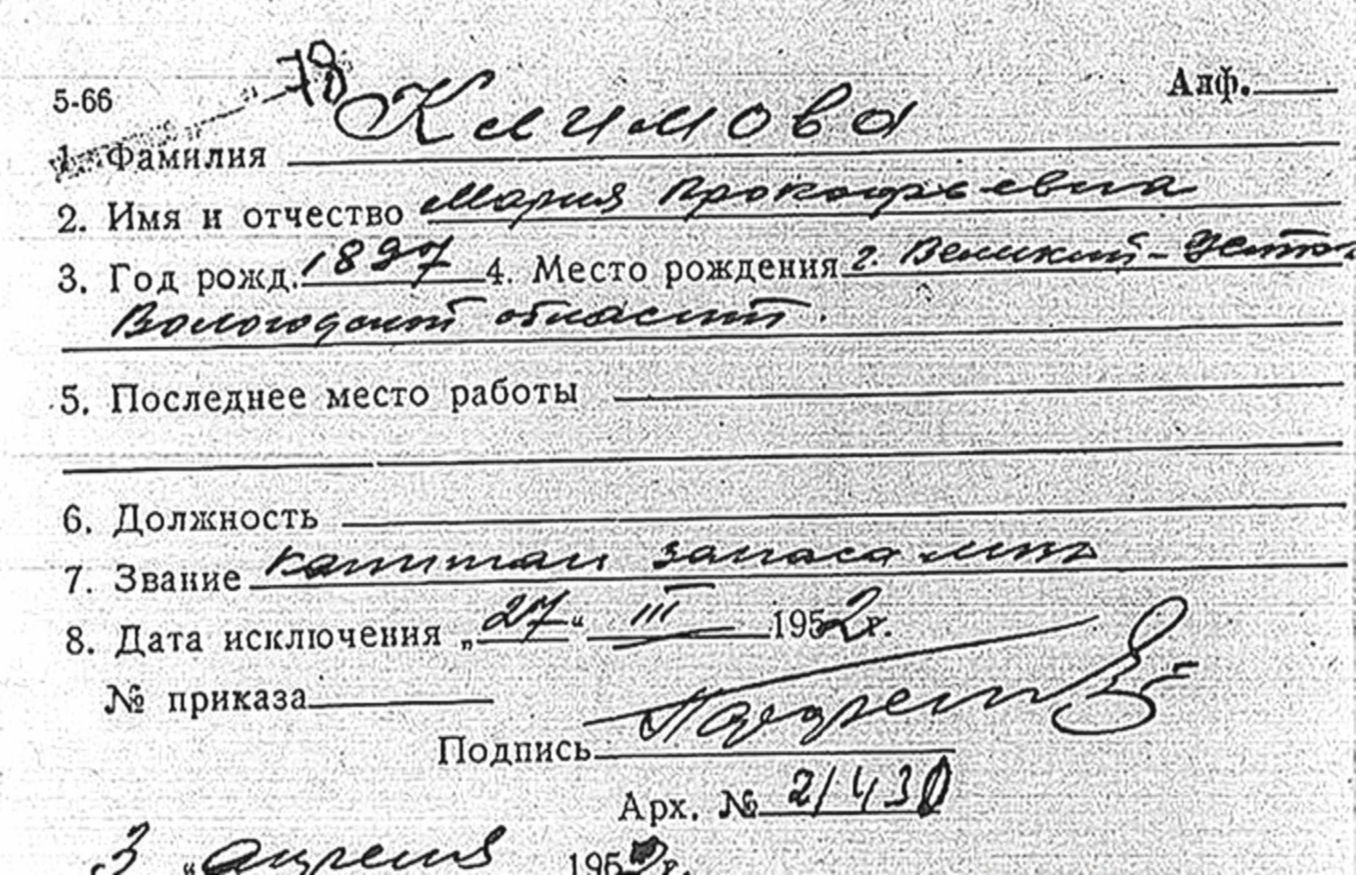 78
5-66
Алф.
1. Фамилия Климова
2. Имя и отчество Мария Прокофьевна
3. Год рожд. 1897 4. Место рождения г. Великий-Устюг
Вологодской области.
5. Последнее место работы
6. Должность
7. Звание капитан запаса
8. Дата исключения „27“ III 1952г.
№ приказа
Подпись
Арх. № 21430
3 „апреля 1952г.